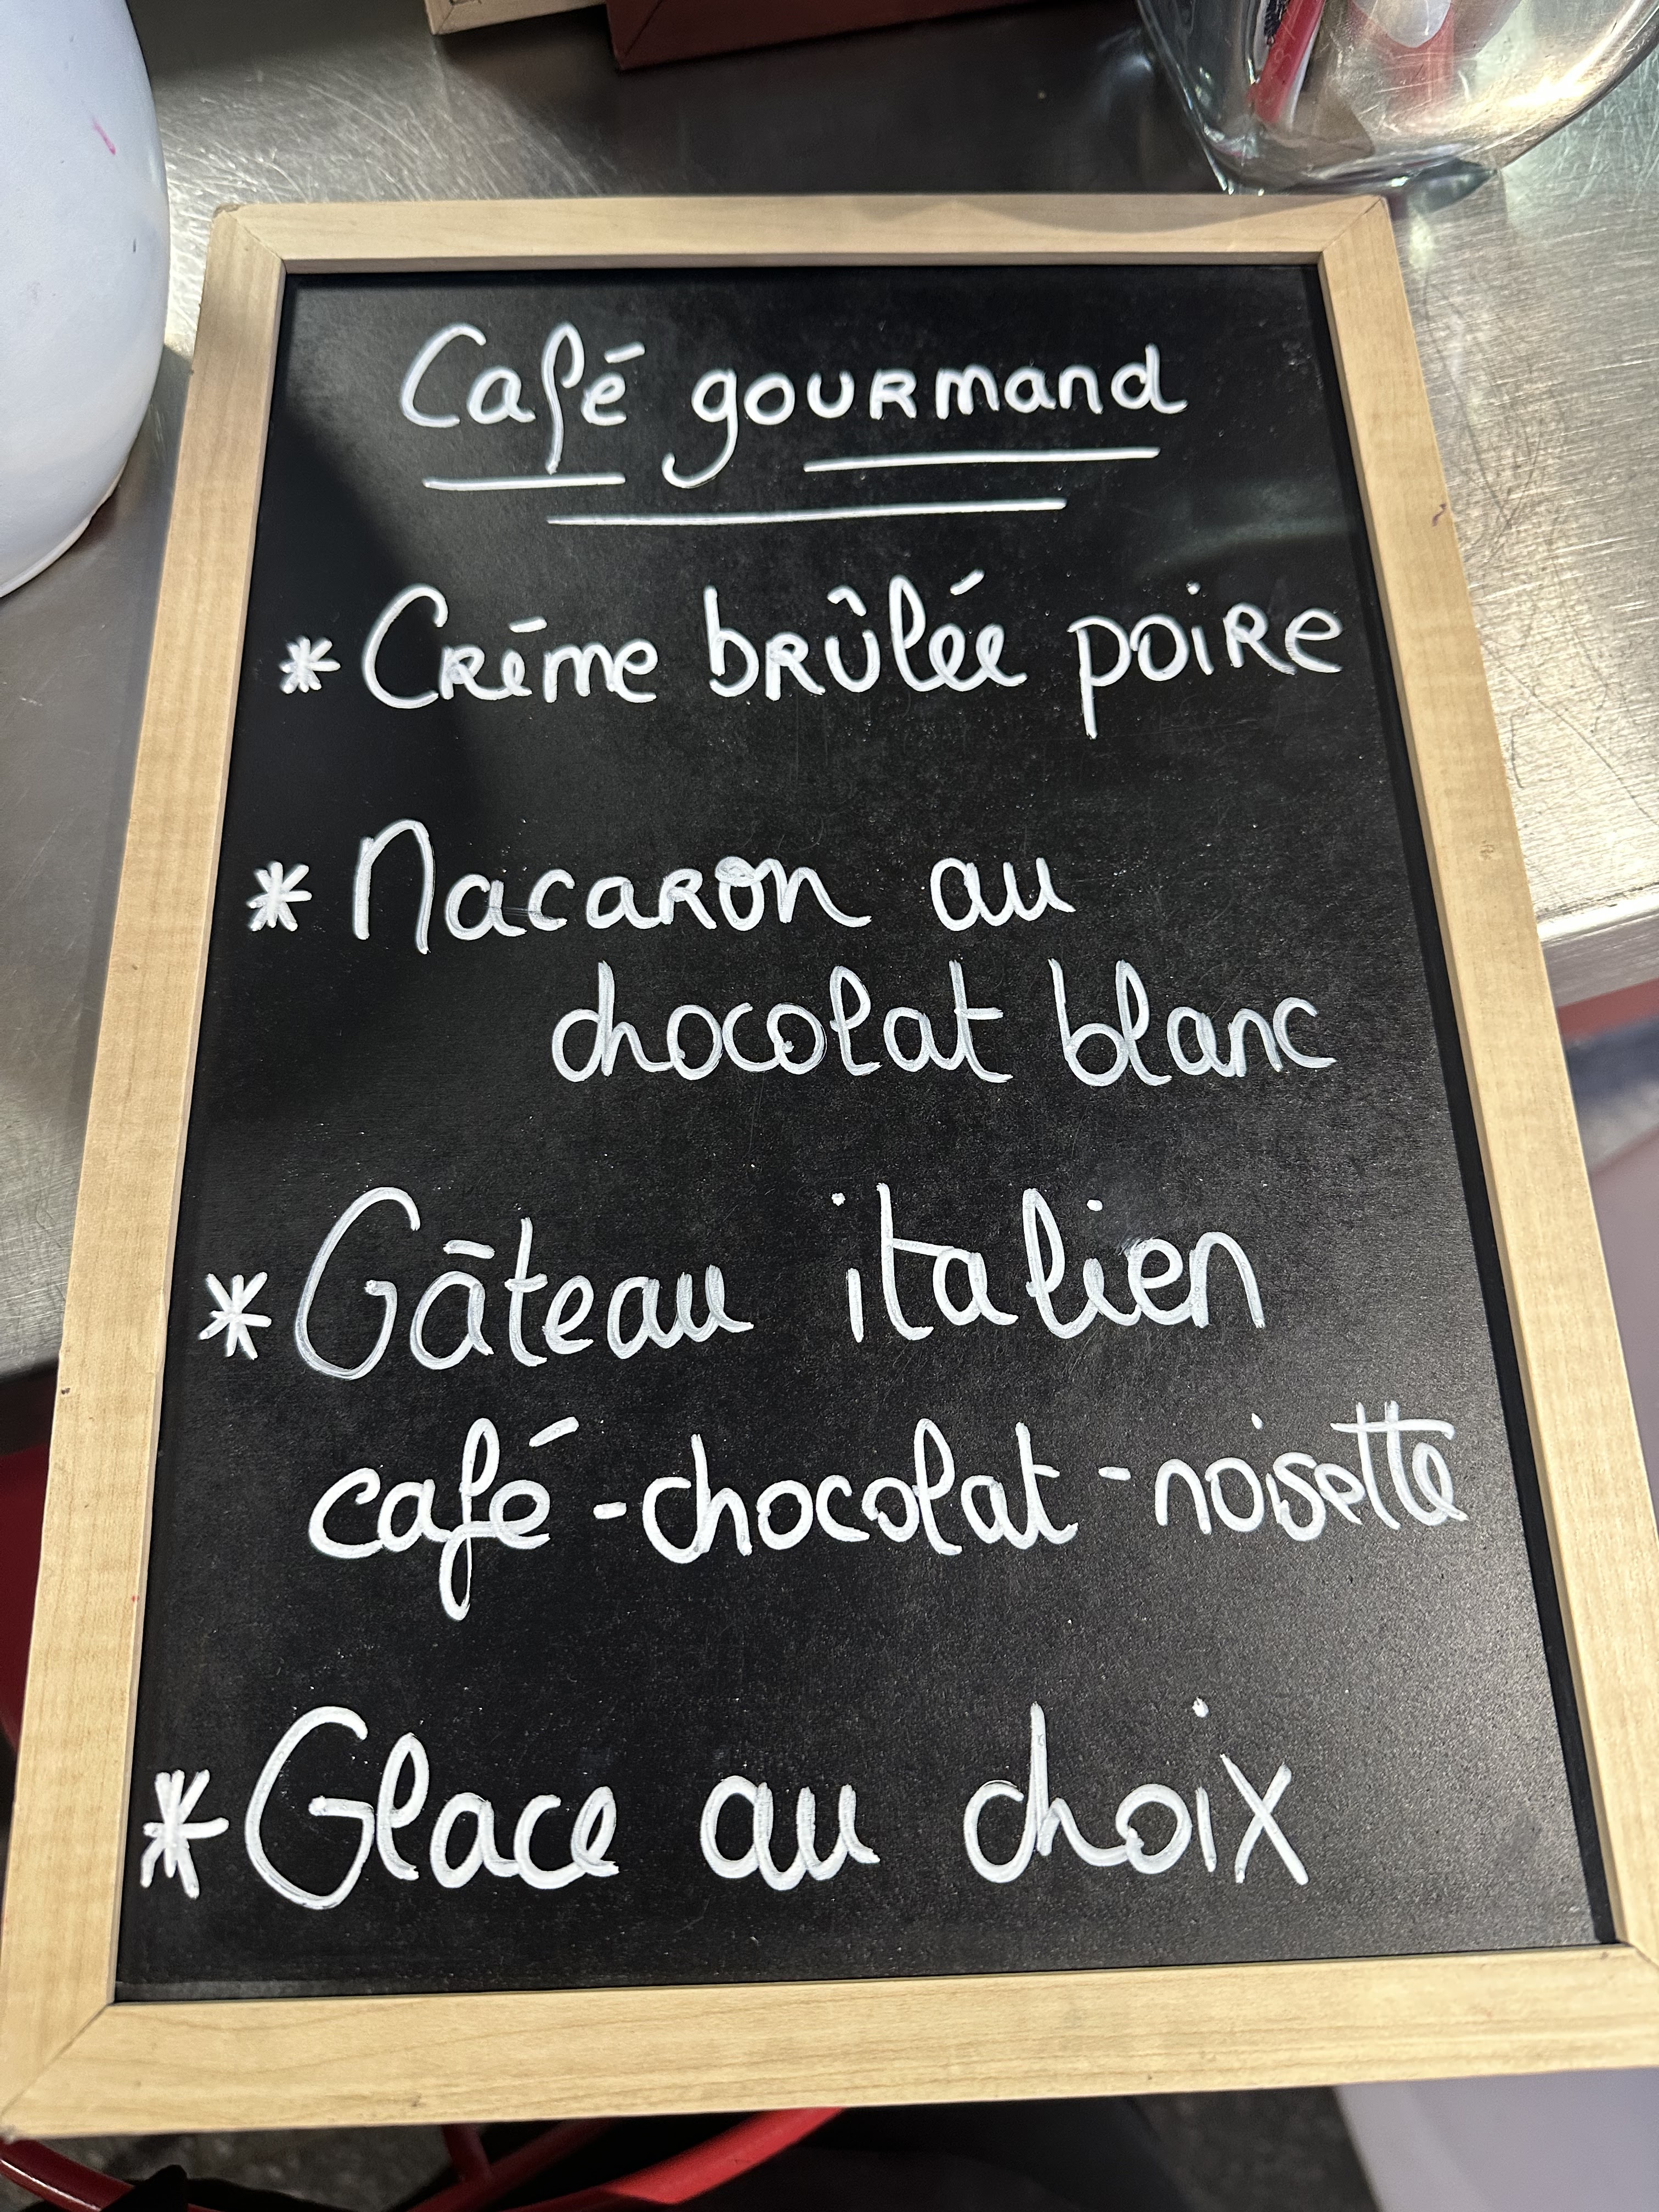 Café gourmand
* Crème brûlée poire
* Macaron au
chocolat blanc
* Gâteau italien
café - chocolat - noisette
* Glace au choix